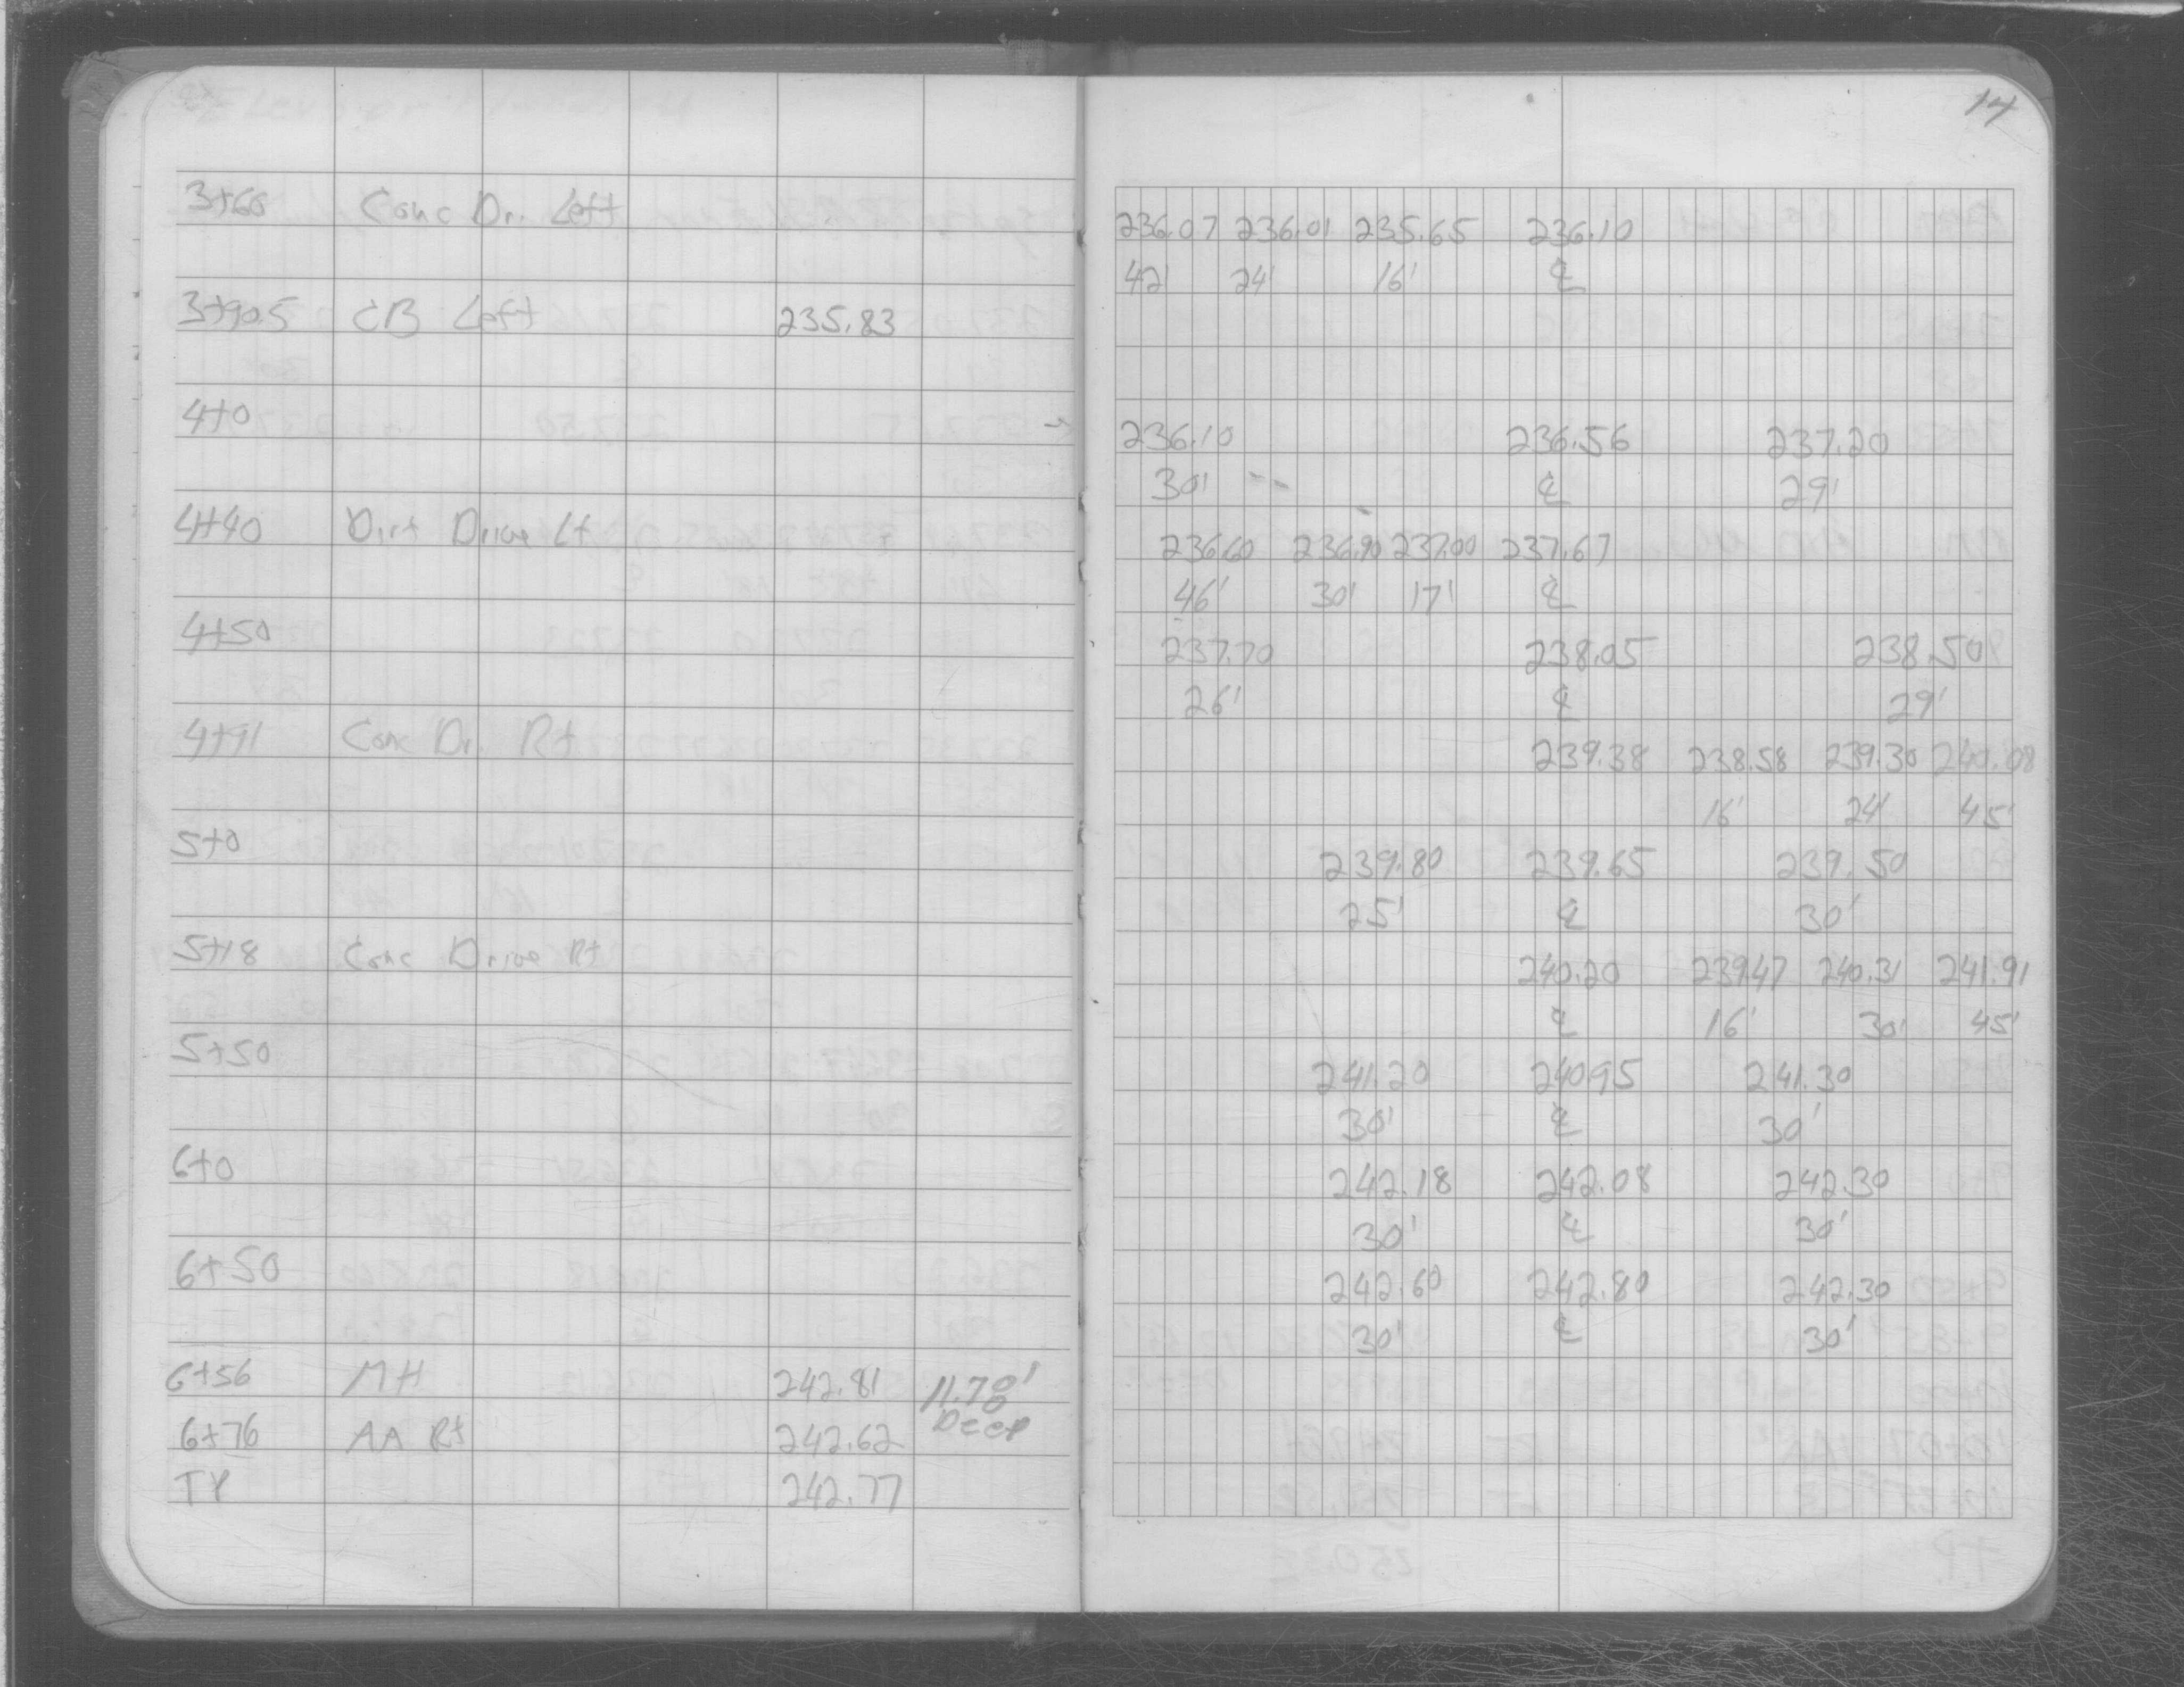 14
3+60 Conc Dr. Left
236.07 236.01 235.65 236.10
42' 24' 16' ℄
3+90.5 CB Left 235.83
4+0
236.10 236.56 237.20
30' -- ℄ 29'
4+40 Dirt Drive Lt
236.60 236.90 237.00 237.67
46' 30' 17' ℄
4+50
237.70 238.05 238.50
26' ℄ 29'
4+91 Conc Dr. Rt
239.38 238.58 239.30 240.08
16' 24' 45'
5+0
239.80 239.65 239.50
25' ℄ 30'
5+18 Conc Drive Rt
240.20 239.47 240.31 241.91
℄ 16' 30' 45'
5+50
241.20 240.95 241.30
30' ℄ 30'
6+0
242.18 242.08 242.30
30' ℄ 30'
6+50
242.60 242.80 242.30
30' ℄ 30'
6+56 MH 242.81 11.78' Deep
6+76 AA Rt 242.62
242.77